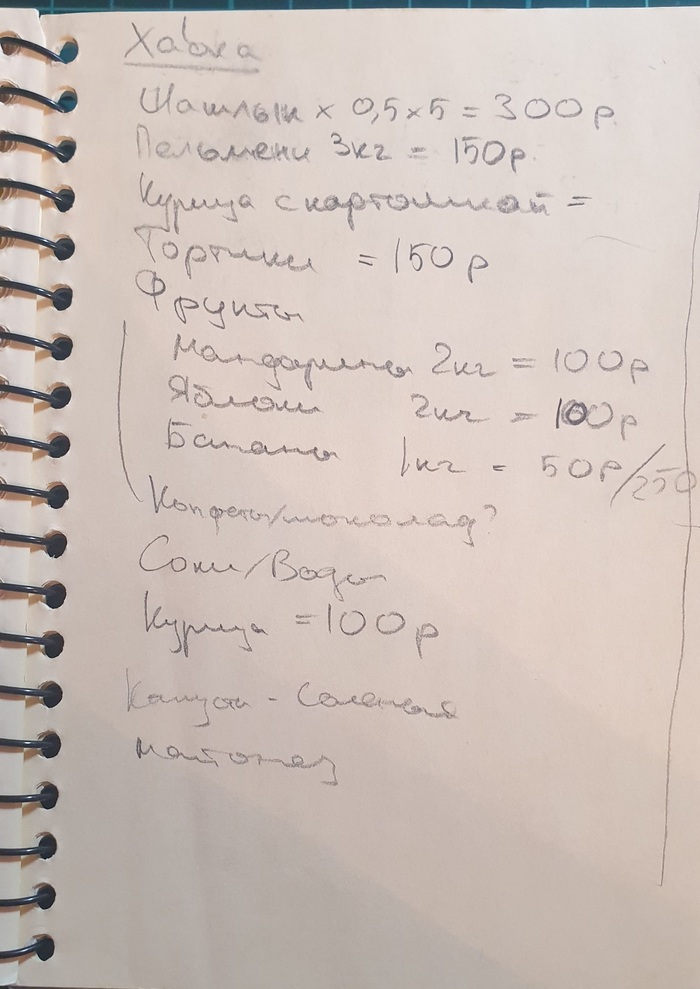 Хавка
Шашлык х 0,5 х 5 = 300р.
Пельмени 3кг = 150р.
Курица с картошкой =
Тортики = 150р
Фрукты
Мандарины 2кг = 100р
Яблоки 2кг = 100р
Бананы 1кг = 50р/250
Конфеты/шоколад?
Соки/Воды
Курица = 100р
Капуста - Соленья
майонез